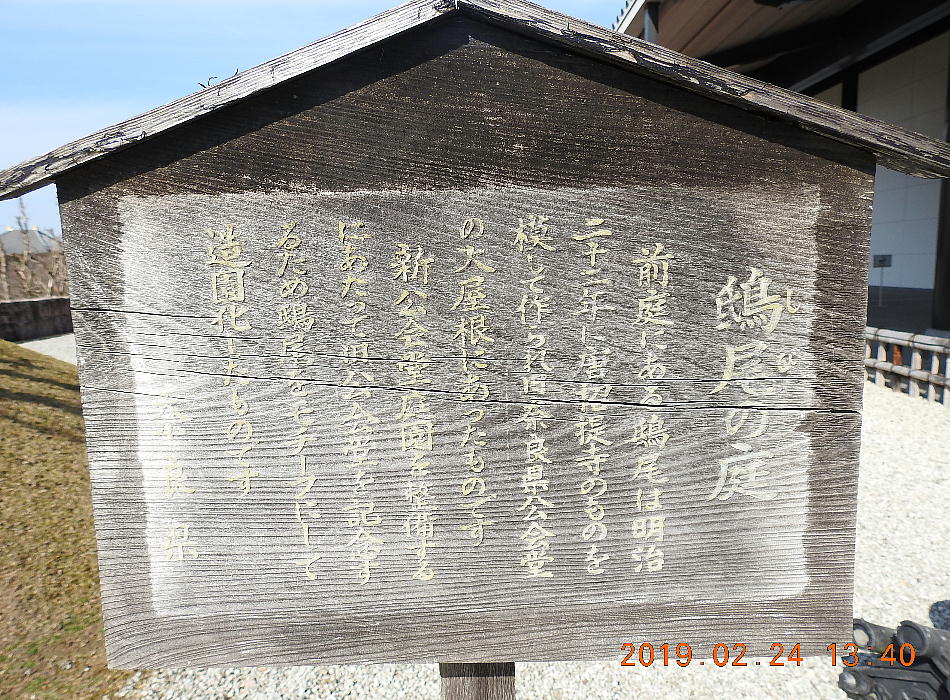 鴟尾の庭
しび
前庭にある鴟尾は明治
二十二年に唐招提寺のものを
模して作られ旧奈良県公会堂
の大屋根にあったものです
新公会堂庭園を整備する
にあたって旧公会堂を記念す
るため鴟尾をモチーフにして
造園化したものです
奈良県
2019.02.24 13:40